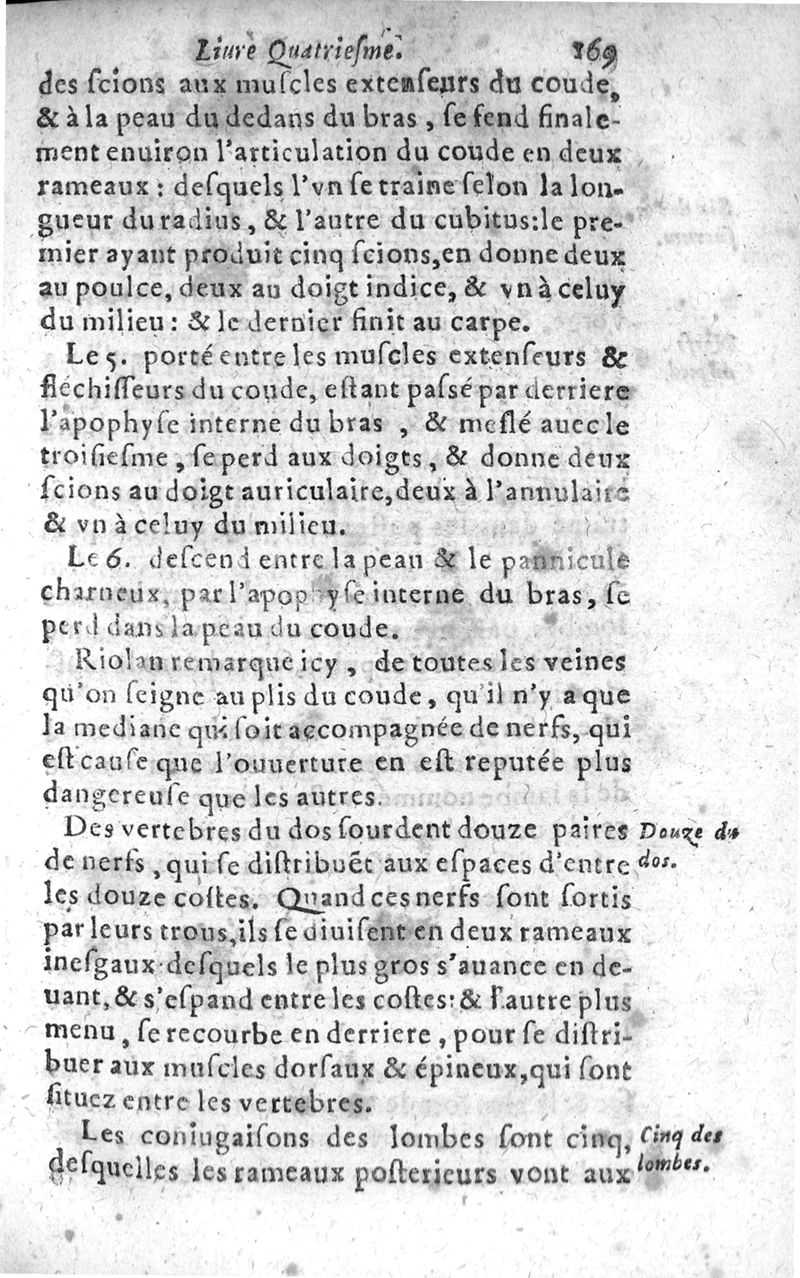 Liure Quatrieſme. 169
des ſcions aux muſcles extenſeurs du coude,
& à la peau du dedans du bras , ſe fend finale-
ment enuiron l'articulation du coude en deux
rameaux : deſquels l'vn ſe traine ſelon la lon-
gueur du radius, & l'autre du cubitus:le pre-
mier ayant produit cinq ſcions,en donne deux
au poulce, deux au doigt indice, & vn à celuy
du milieu : & le dernier finit au carpe.
Le 5. porté entre les muſcles extenſeurs &
fléchiſſeurs du coude, eſtant paſsé par derriere
l'apophyſe interne du bras , & meſlé auec le
troiſieſme , ſe perd aux doigts, & donne deux
ſcions au doigt auriculaire,deux à l'annulaire
& vn à celuy du milieu.
Le 6. deſcend entre la peau & le pannicule
charneux, par l'apophyſe interne du bras, ſe
perd dans la peau du coude.
Riolan remarque icy , de toutes les veines
qu'on ſeigne au plis du coude, qu'il n'y a que
la mediane qui ſoit accompagnée de nerfs, qui
eſt cauſe que l'ouuerture en eſt reputée plus
dangereuſe que les autres.
Des vertebres du dos ſourdent douze paires
Douze du
de nerfs , qui ſe diſtribuẽt aux eſpaces d'entre
dos.
les douze coſtes. Quand ces nerfs ſont ſortis
par leurs trous,ils ſe diuiſent en deux rameaux
ineſgaux deſquels le plus gros s'auance en de-
uant, & s'eſpand entre les coſtes: & l'autre plus
menu , ſe recourbe en derriere , pour ſe diſtri-
buer aux muſcles dorſaux & épineux,qui ſont
ſituez entre les vertebres.
Les coniugaiſons des lombes ſont cinq,
Cinq des
deſquelles les rameaux poſterieurs vont aux
lombes.